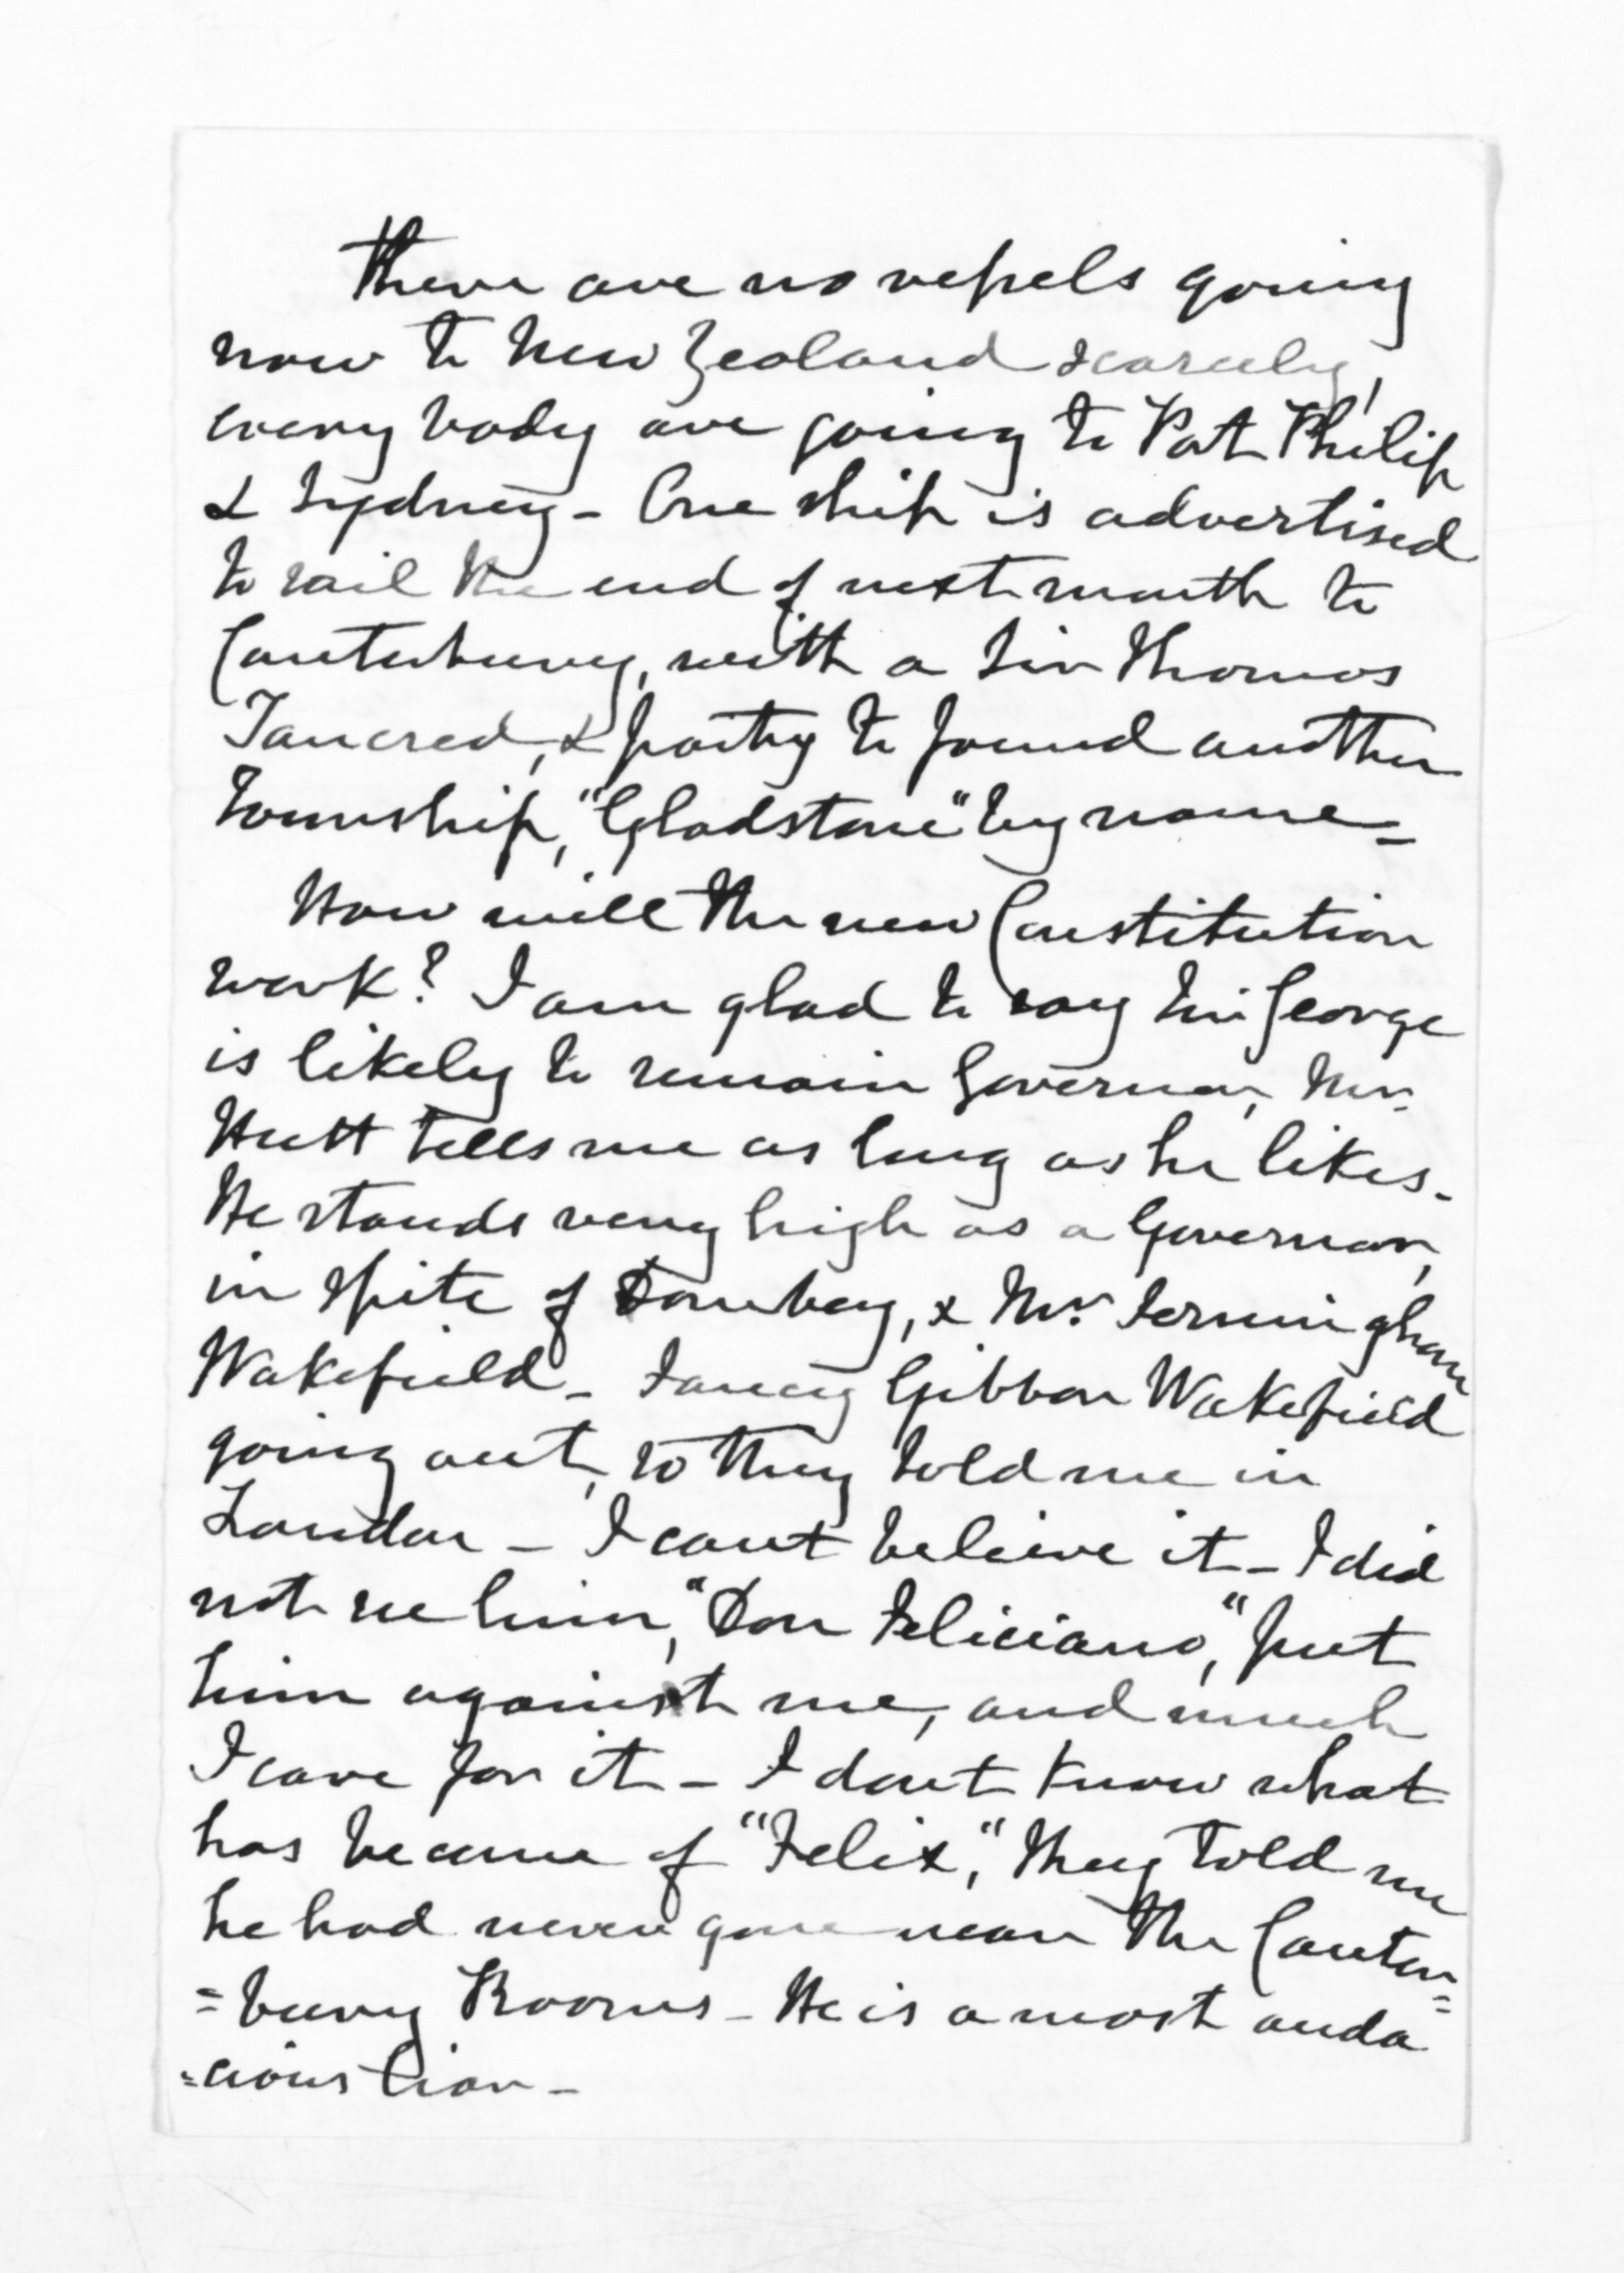 There are no vessels going
now to New Zealand scarcely,
every body are going to Port Philip
& Sydney - One ship is advertised
to sail the end of next month to
Canterbury, with a Sir Thomas
Tancred, & party to found another
Township, "Gladstone" by name -
How will the new Constitution
work? I am glad to say Sir George
is likely to remain Governor, Mr.
Hutt tells me as long as he likes -
He stands very high as a Governor,
in spite of Dombey, & Mr. Jerningham
Wakefield - Fancy Gibbon Wakefield
going out, so they told me in
London - I cant believe it - I did
not see him, "Don Feliciano," put
him against me, and much
I care for it - I dont know what
has become of "Felix," they told me
he had never gone near the Canter=
=bury Rooms - He is a most auda
=cious liar -